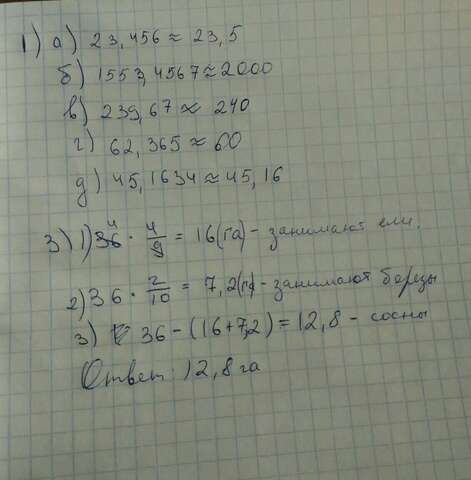 1) а) 23,456 ≈ 23,5
б) 1553,4567 ≈ 2000
в) 239,67 ≈ 240
г) 62,365 ≈ 60
д) 45,1634 ≈ 45,16
3) 1) 36 4 · 4/9 = 16 (га) - занимают ели.
2) 36 · 2/10 = 7,2 (га) - занимают березы
3) 36 - (16 + 7,2) = 12,8 - сосны
Ответ: 12,8 га